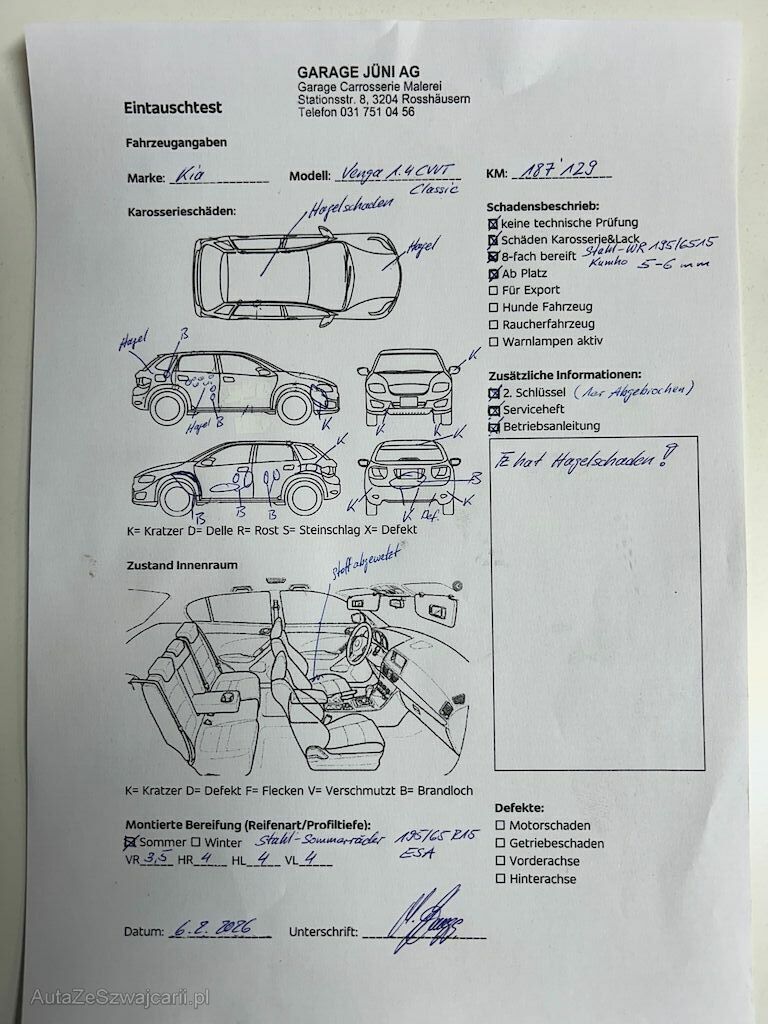 GARAGE JÜNI AG
Garage Carrosserie Malerei
Stationsstr. 8, 3204 Rosshäusern
Telefon 031 751 04 56
Eintauschtest
Fahrzeugangaben
Marke: Kia Modell: Venga 1.4 CVVT Classic KM: 187'129
Karosserieschäden:
Hagelschaden
Hagel
Hagel B
Hagel B K
K
K K
K
B B B
K K
K B K
K Def.
K= Kratzer D= Delle R= Rost S= Steinschlag X= Defekt
Schadensbeschrieb:
keine technische Prüfung
Schäden Karosserie&Lack
8-fach bereift Stahl-WR 195/65 15
Kumho 5-6 mm
Ab Platz
Für Export
Hunde Fahrzeug
Raucherfahrzeug
Warnlampen aktiv
Zusätzliche Informationen:
2. Schlüssel (1er Abgebrochen)
Serviceheft
Betriebsanleitung
FZ hat Hagelschaden!
Zustand Innenraum
Stoff abgewetzt
K= Kratzer D= Defekt F= Flecken V= Verschmutzt B= Brandloch
Montierte Bereifung (Reifenart/Profiltiefe):
Sommer Winter Stahl-Sommerräder 195/65 R15
VR 3,5 HR 4 HL 4 VL 4 ESA
Defekte:
Motorschaden
Getriebeschaden
Vorderachse
Hinterachse
Datum: 6.2.2026 Unterschrift:
AutaZeSzwajcarii.pl